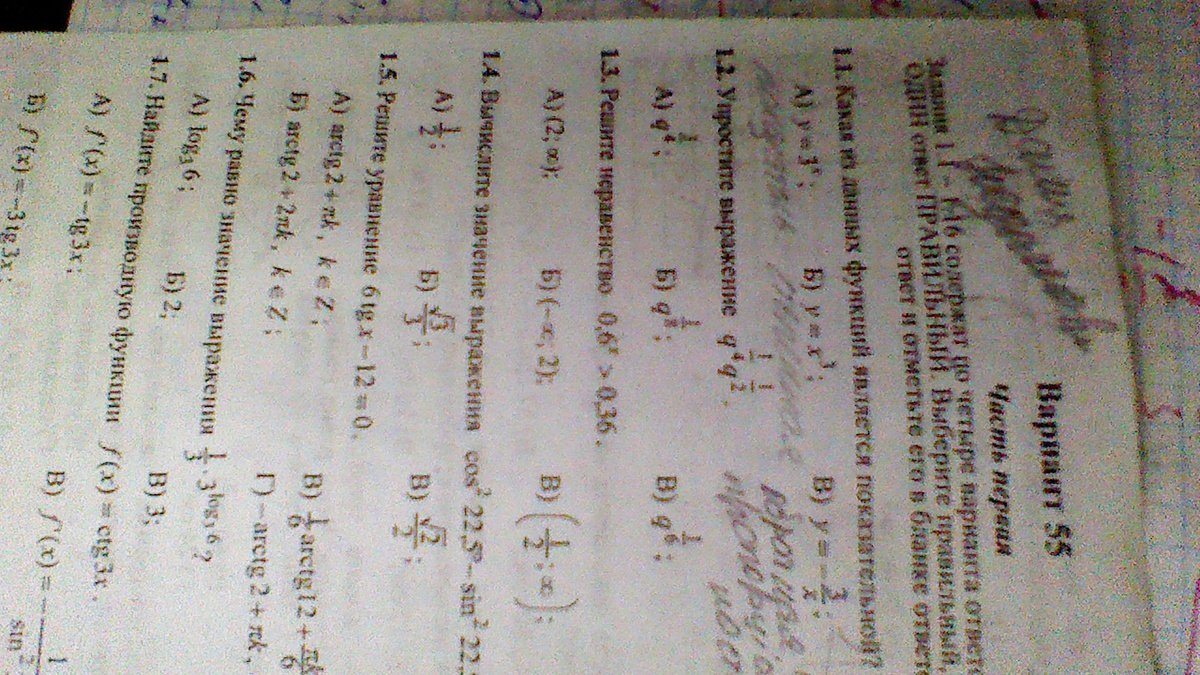 Вариант 55
Часть первая
Задания 1.1 – 1.16 содержат по четыре варианта ответа
ОДИН ответ ПРАВИЛЬНЫЙ. Выберите правильный,
ответ и отметьте его в бланке ответ
1.1. Какая из данных функций является показательной?
А) y = 3ˣ; Б) y = x³; В) y = 3/x;
1.2. Упростите выражение q^(1/4) q^(1/2).
А) q^(3/4); Б) q^(1/8); В) q^(1/6);
1.3. Решите неравенство 0,6ˣ > 0,36.
А) (2; ∞); Б) (-∞; 2); В) (1/2; ∞);
1.4. Вычислите значение выражения cos² 22,5° – sin² 22,
А) 1/2; Б) √3/3; В) √2/2;
1.5. Решите уравнение 6 tg x – 12 = 0.
А) arctg 2 + πk, k ∈ Z; В) 1/6 arctg 12 + πk/6
Б) arctg 2 + 2πk, k ∈ Z; Г) – arctg 2 + πk,
1.6. Чему равно значение выражения 1/3 · 3^(log₃ 6)?
А) log₃ 6; Б) 2; В) 3;
1.7. Найдите производную функции f(x) = ctg 3x.
А) f'(x) = – tg 3x; В) f'(x) = – 1/sin²
Б) f'(x) = –3 tg 3x;